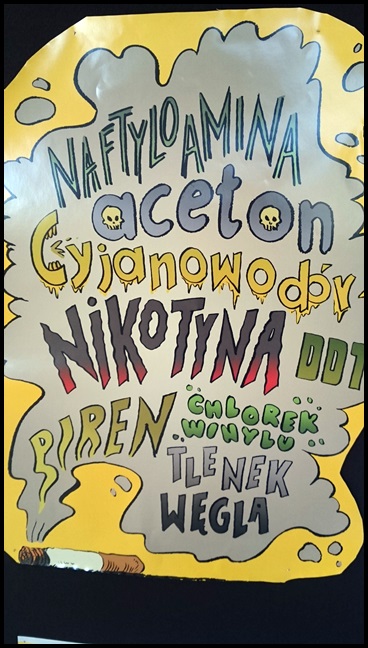 NAFTYLOAMINA
aceton
Cyjanowodór
NiKOTYNA
DDT
PIREN
CHLOREK
WiNYLU
TLENEK
WĘGLA